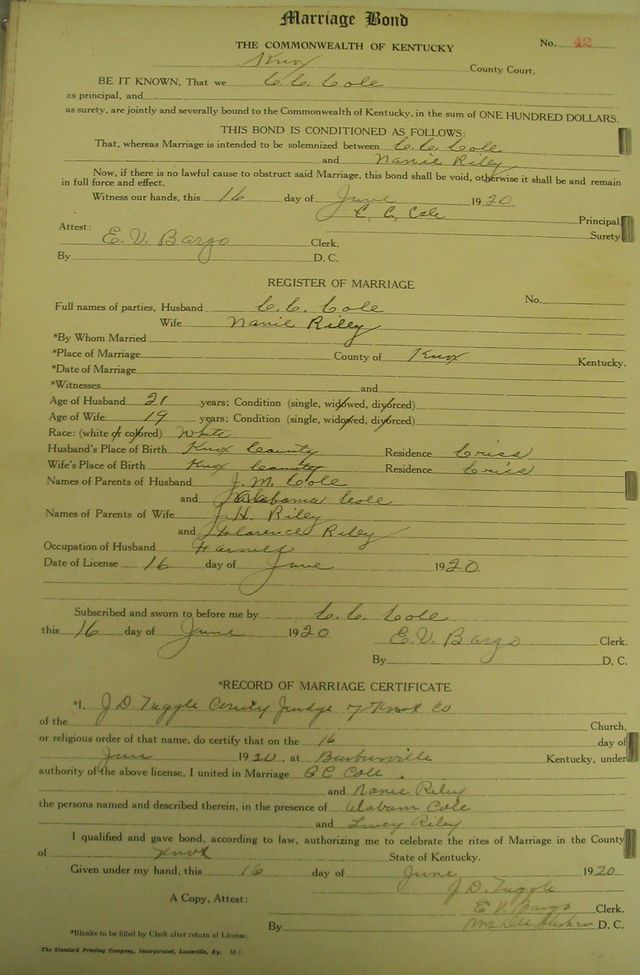 Marriage Bond
THE COMMONWEALTH OF KENTUCKY No. 42
Knox County Court,
BE IT KNOWN, That we C. C. Cole
as principal, and
as surety, are jointly and severally bound to the Commonwealth of Kentucky, in the sum of ONE HUNDRED DOLLARS.
THIS BOND IS CONDITIONED AS FOLLOWS:
That, whereas Marriage is intended to be solemnized between C. C. Cole
and Nanie Riley
Now, if there is no lawful cause to obstruct said Marriage, this bond shall be void, otherwise it shall be and remain
in full force and effect.
Witness our hands, this 16 day of June 1920.
C. C. Cole Principal
Surety.
Attest: E. V. Bargo Clerk.
By D. C.
REGISTER OF MARRIAGE
No.
Full names of parties, Husband C. C. Cole
Wife Nanie Riley
*By Whom Married
*Place of Marriage County of Knox Kentucky.
*Date of Marriage
*Witnesses and
Age of Husband 21 years; Condition (single, widowed, divorced)
Age of Wife 19 years; Condition (single, widowed, divorced)
Race: (white or colored) White
Husband's Place of Birth Knox County Residence Criss
Wife's Place of Birth Knox County Residence Criss
Names of Parents of Husband J. M. Cole
and Alabama Cole
Names of Parents of Wife J. H. Riley
and Florence Riley
Occupation of Husband Farmer
Date of License 16 day of June 1920.
Subscribed and sworn to before me by C. C. Cole
this 16 day of June 1920 E. V. Bargo Clerk.
By D. C.
*RECORD OF MARRIAGE CERTIFICATE
*I, J D. Tuggle County Judge of Knox Co
of the Church,
or religious order of that name, do certify that on the 16 day of
June 1920, at Barbourville Kentucky, under
authority of the above license, I united in Marriage C C Cole
and Nanie Riley
the persons named and described therein, in the presence of Alabam Cole
and Lucy Riley
I qualified and gave bond, according to law, authorizing me to celebrate the rites of Marriage in the County
of Knox State of Kentucky.
Given under my hand, this 16 day of June 1920
J D. Tuggle
A Copy, Attest: E V. Bargo Clerk.
By D. C.
*Blanks to be filled by Clerk after return of License.
The Standard Printing Company, Incorporated, Louisville, Ky. M-1.